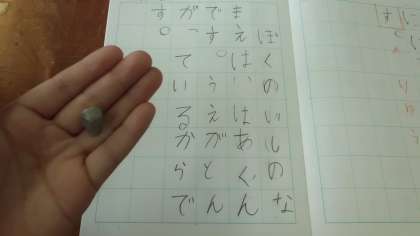 ぼくのいしのな
まえはいはあぐん
です。うえがとん
がっているからで
す。